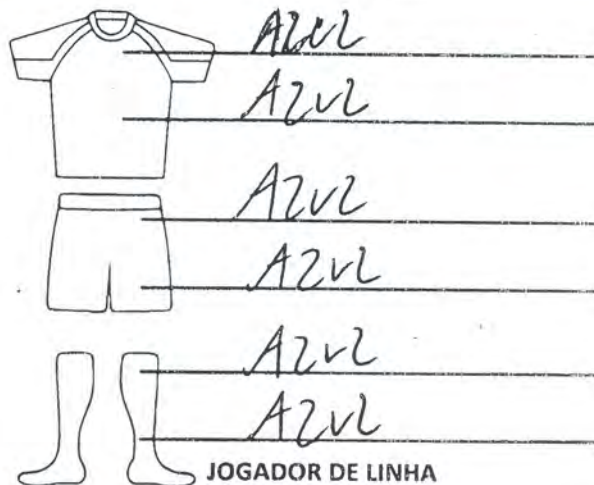 AZUL
AZUL
AZUL
AZUL
AZUL
AZUL
JOGADOR DE LINHA